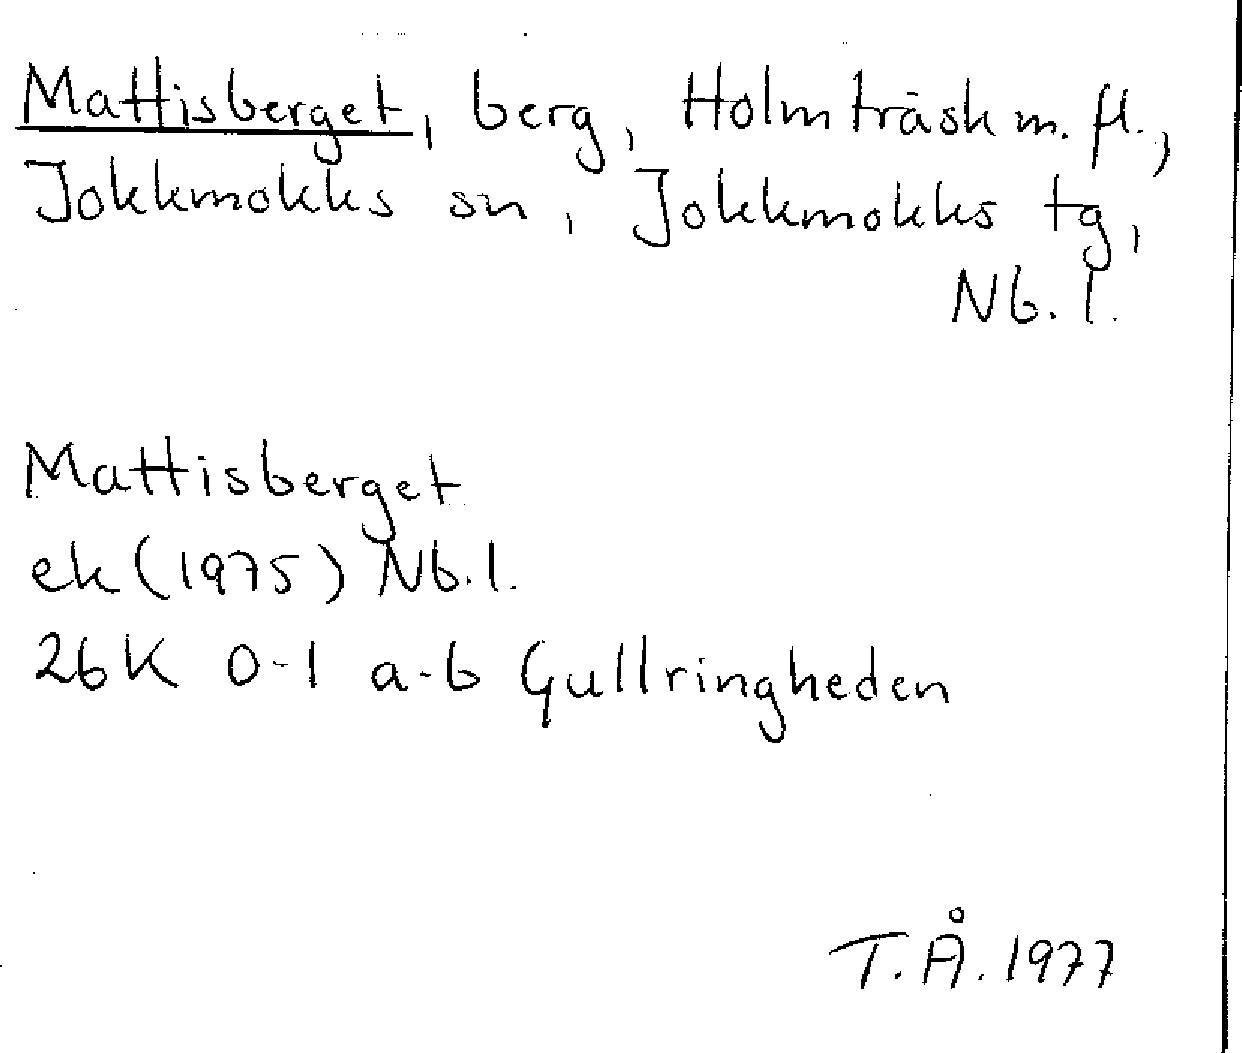 Mattisberget, berg, Holmträsk m. fl.,
Jokkmokks sn, Jokkmokks tg,
Nb. l.
Mattisberget
ek (1975) Nb. l.
26K 0-1 a-b Gullringheden
T. Å. 1977